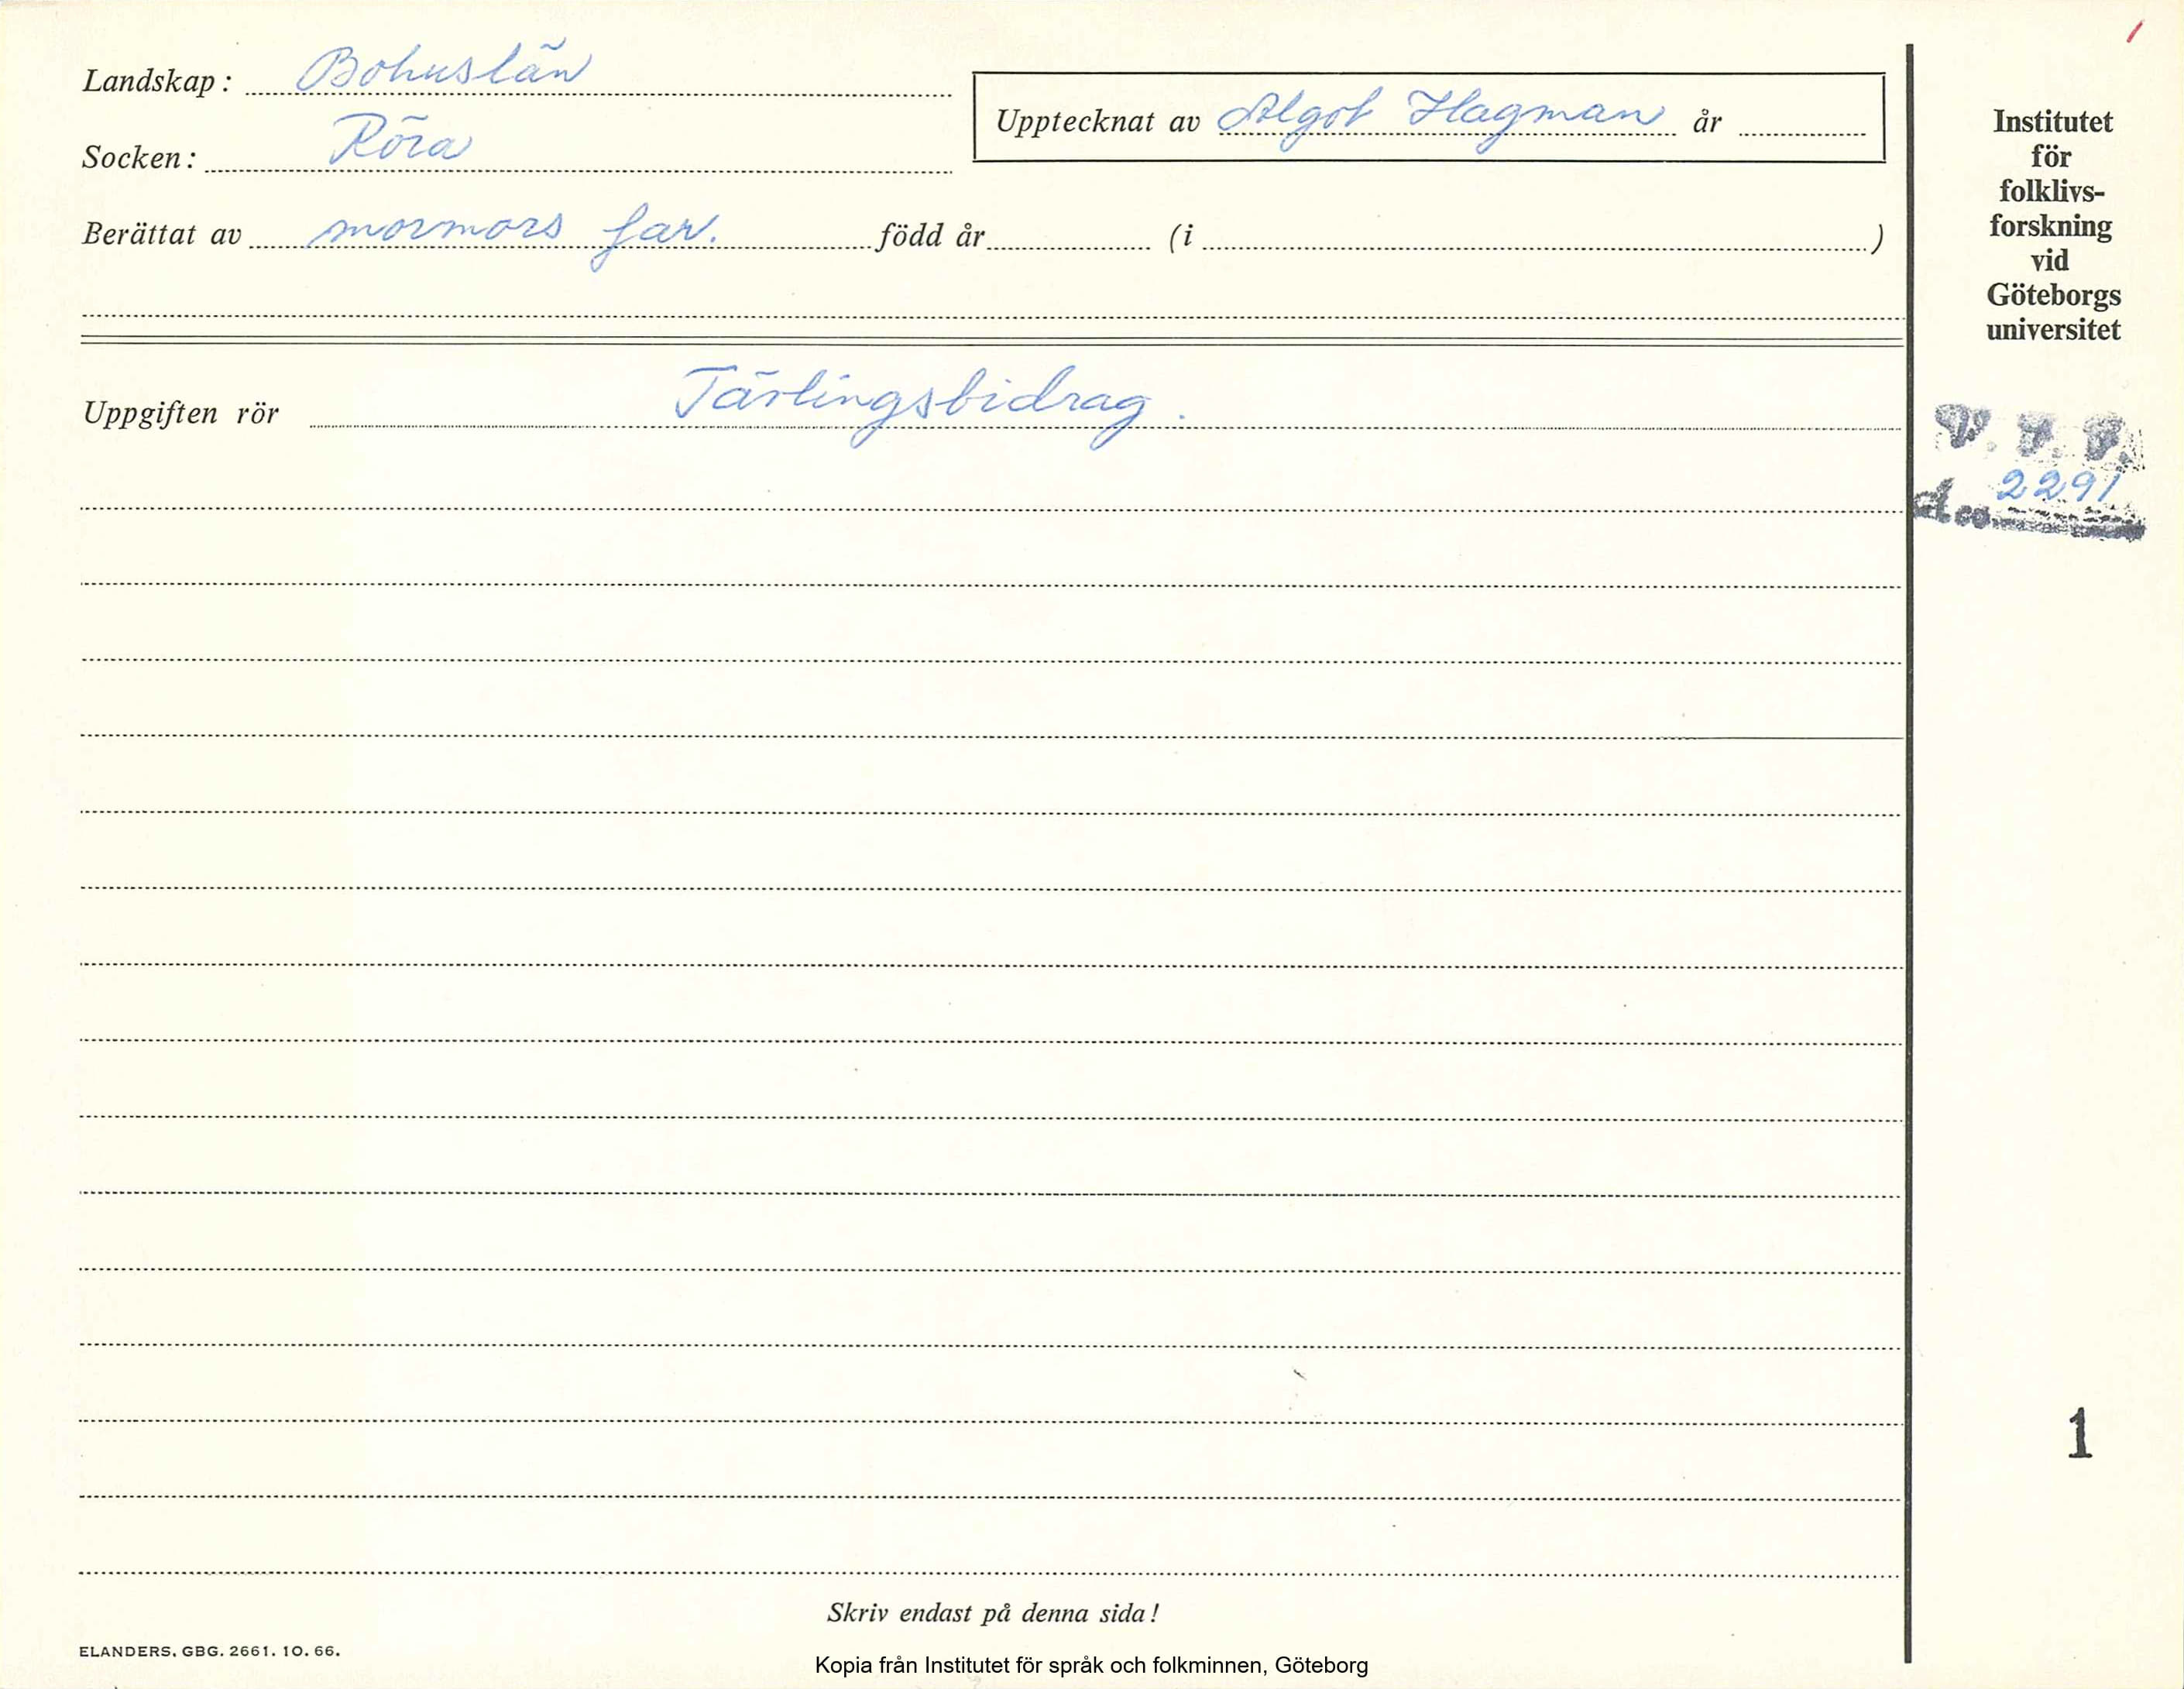 Landskap: Bohuslän
Socken: Röra
Upptecknat av Algot Hagman år
Berättat av mormors far. född år (i )
Uppgiften rör Tävlingsbidrag.
Institutet
för
folklivs-
forskning
vid
Göteborgs
universitet
V. F. F.
2291
1
Skriv endast på denna sida!
ELANDERS. GBG. 2661. 10. 66.
Kopia från Institutet för språk och folkminnen, Göteborg